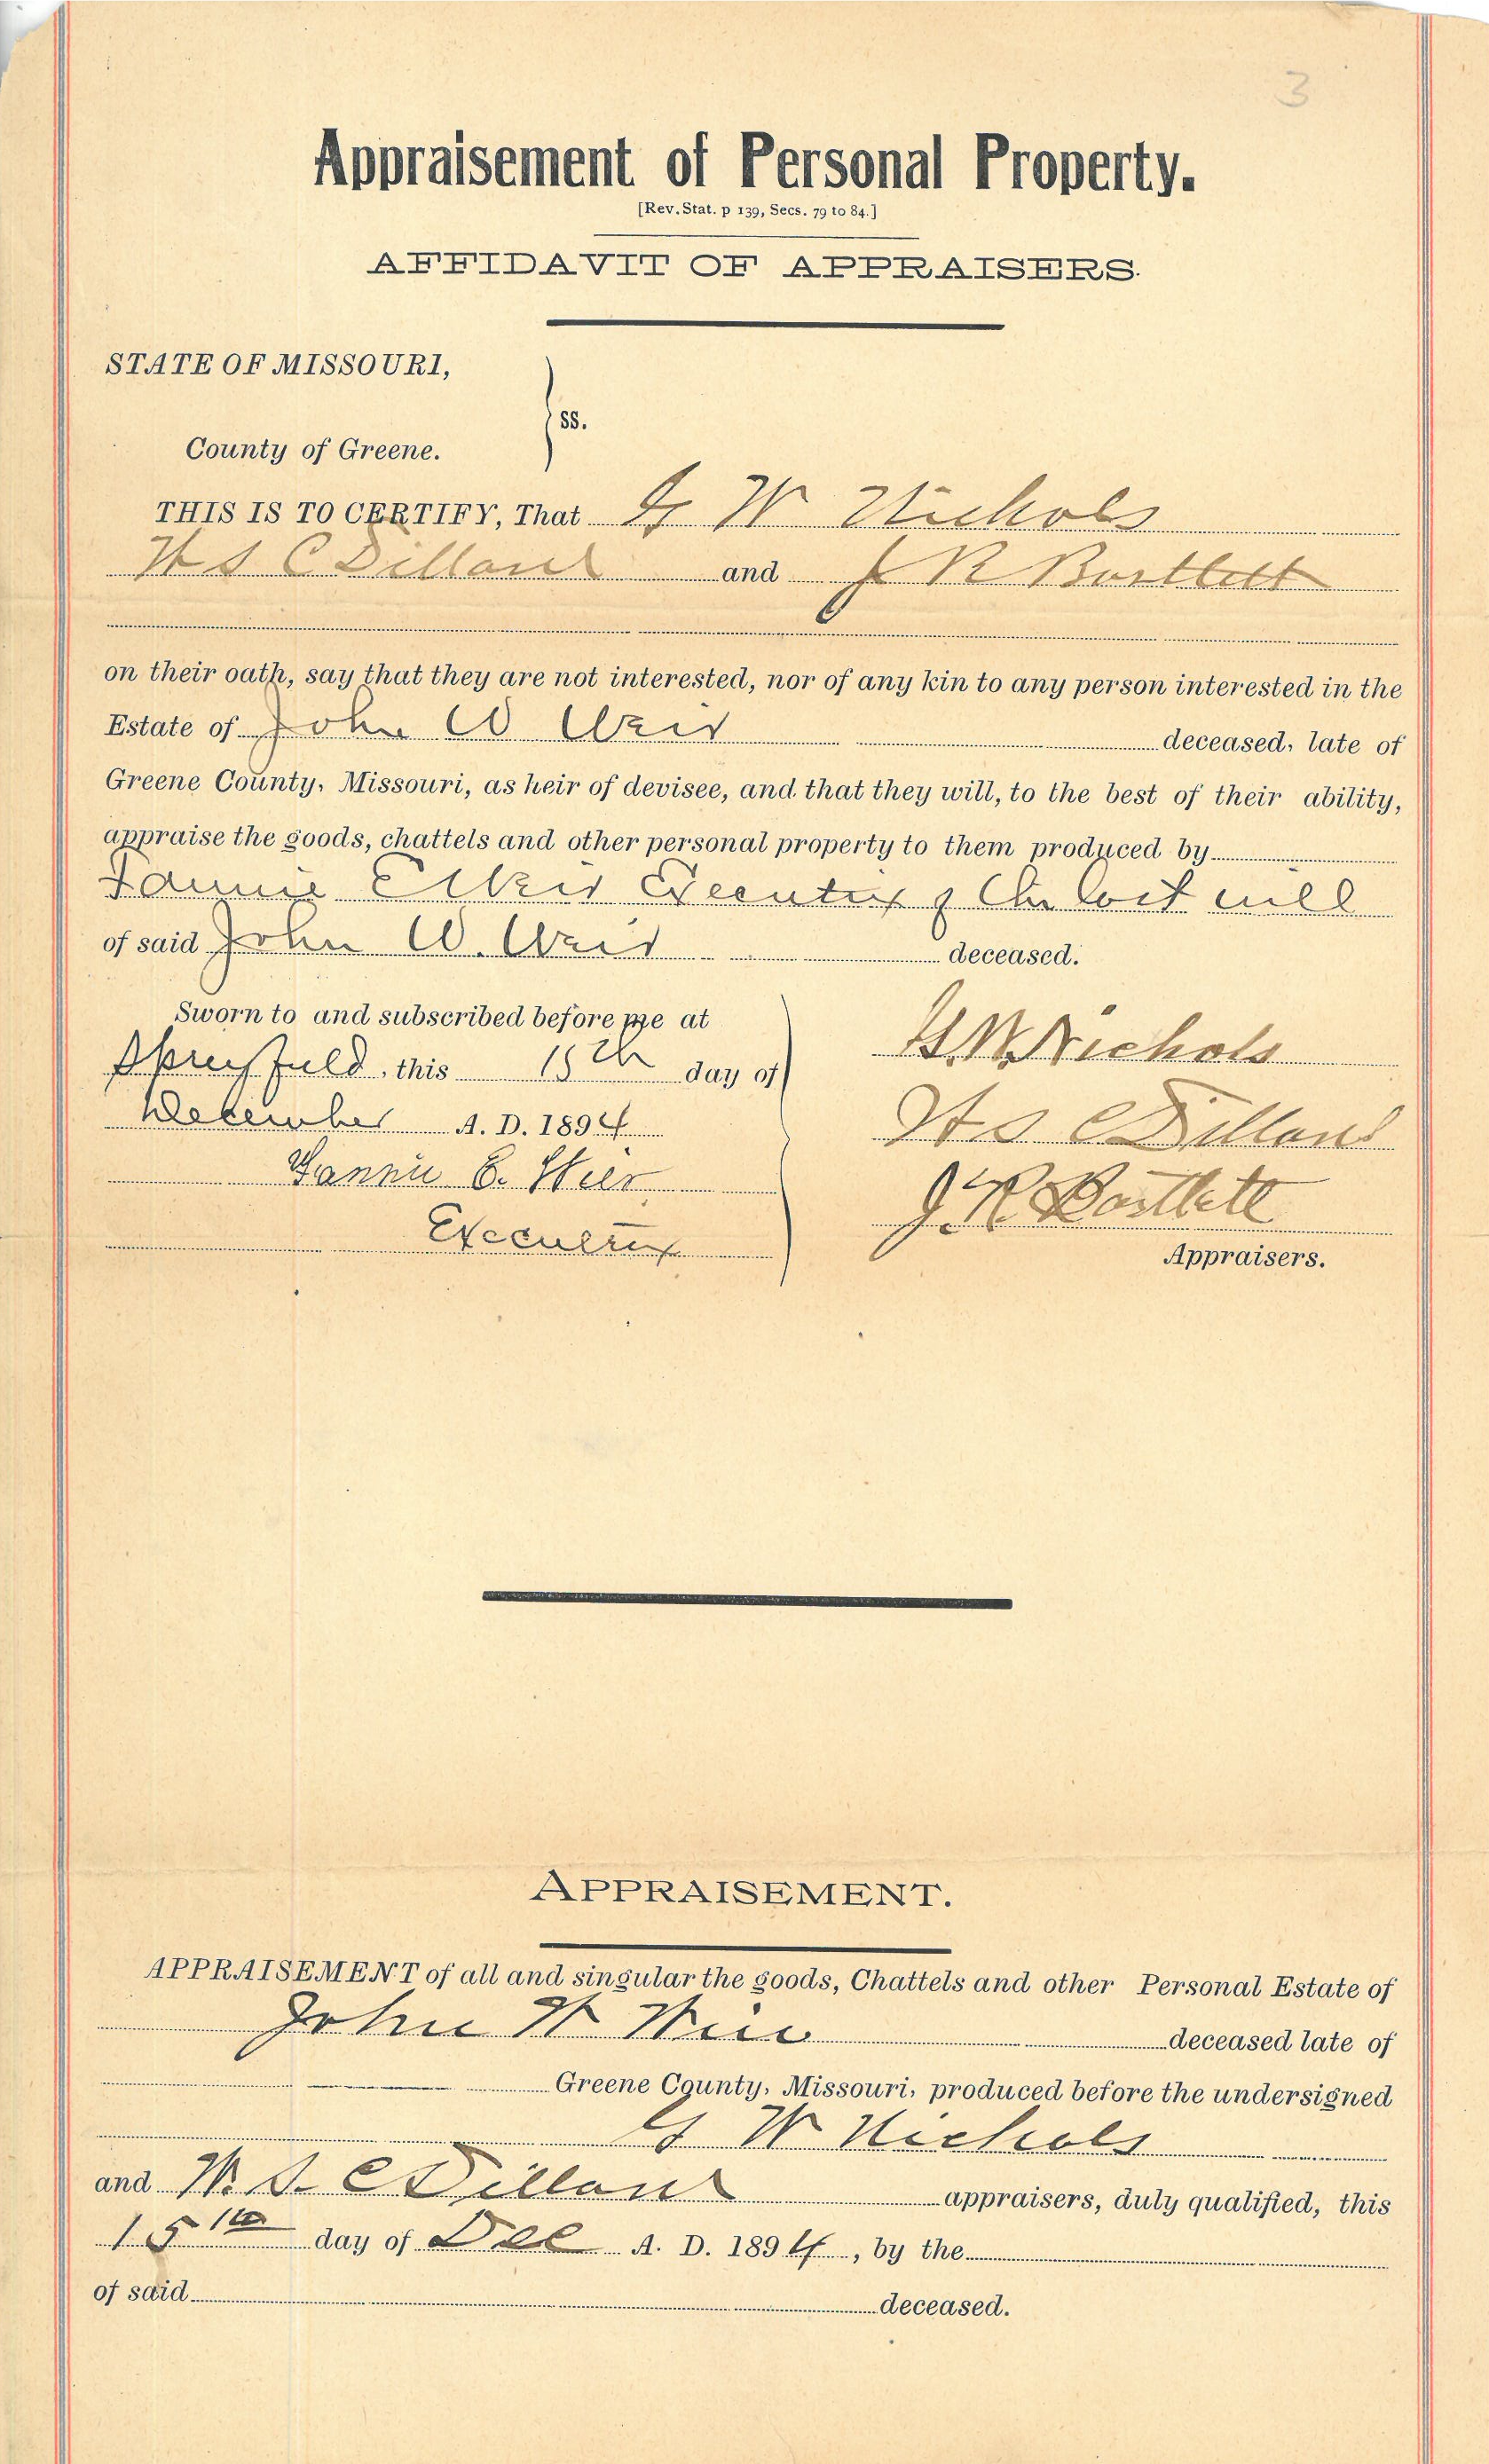 3
Appraisement of Personal Property.
[Rev. Stat. p 139, Secs. 79 to 84.]
AFFIDAVIT OF APPRAISERS.
STATE OF MISSOURI,
ss.
County of Greene.
THIS IS TO CERTIFY, That G W Nichols
W S C Dillard and J R Bartlett
on their oath, say that they are not interested, nor of any kin to any person interested in the
Estate of John W Weir deceased, late of
Greene County, Missouri, as heir of devisee, and that they will, to the best of their ability,
appraise the goods, chattels and other personal property to them produced by
Fannie E Weir Executrix of the last will
of said John W. Weir deceased.
Sworn to and subscribed before me at
Springfield, this 15th day of
December A. D. 1894
Fannie E. Weir
Executrix
G W Nichols
W S C Dillard
J. R. Bartlett
Appraisers.
APPRAISEMENT.
APPRAISEMENT of all and singular the goods, Chattels and other Personal Estate of
John W Weir deceased late of
Greene County, Missouri, produced before the undersigned
G W Nichols
and W. S. C Dillard appraisers, duly qualified, this
15th day of Dec A. D. 1894, by the
of said deceased.